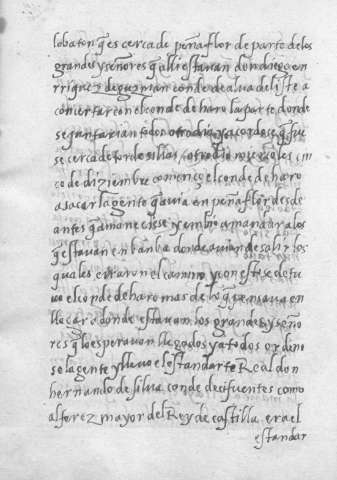 lobaton q̃ es cerca de peñaflor de parte de los
grandes y señores q̃ alli estavan don diego en
rriquez de guzman conde de alva de liste a
concertar con el conde de haro la parte donde
se juntarian todos otro dia y acordose q̃ fue
se cerca de tordesillas otro dia miercoles cin
co de diziembre començo el conde de haro
a sacar la gente q̃ avia en peñaflor desde
antes q̃ amaneciesse y embio a mandar a los
q̃ estavan en banba donde avian de salir los
quales erraron el camino y con esto se detu
vo el conde de haro mas de lo q̃ pensava en
llegar a donde estavan los grandes y seño
res q̃ lo esperavan llegados ya todos ordino
se la gente y llevo el estandarte Real don
hernando de silva conde de cifuentes como
alferez mayor del Rey de castilla era el
estandar